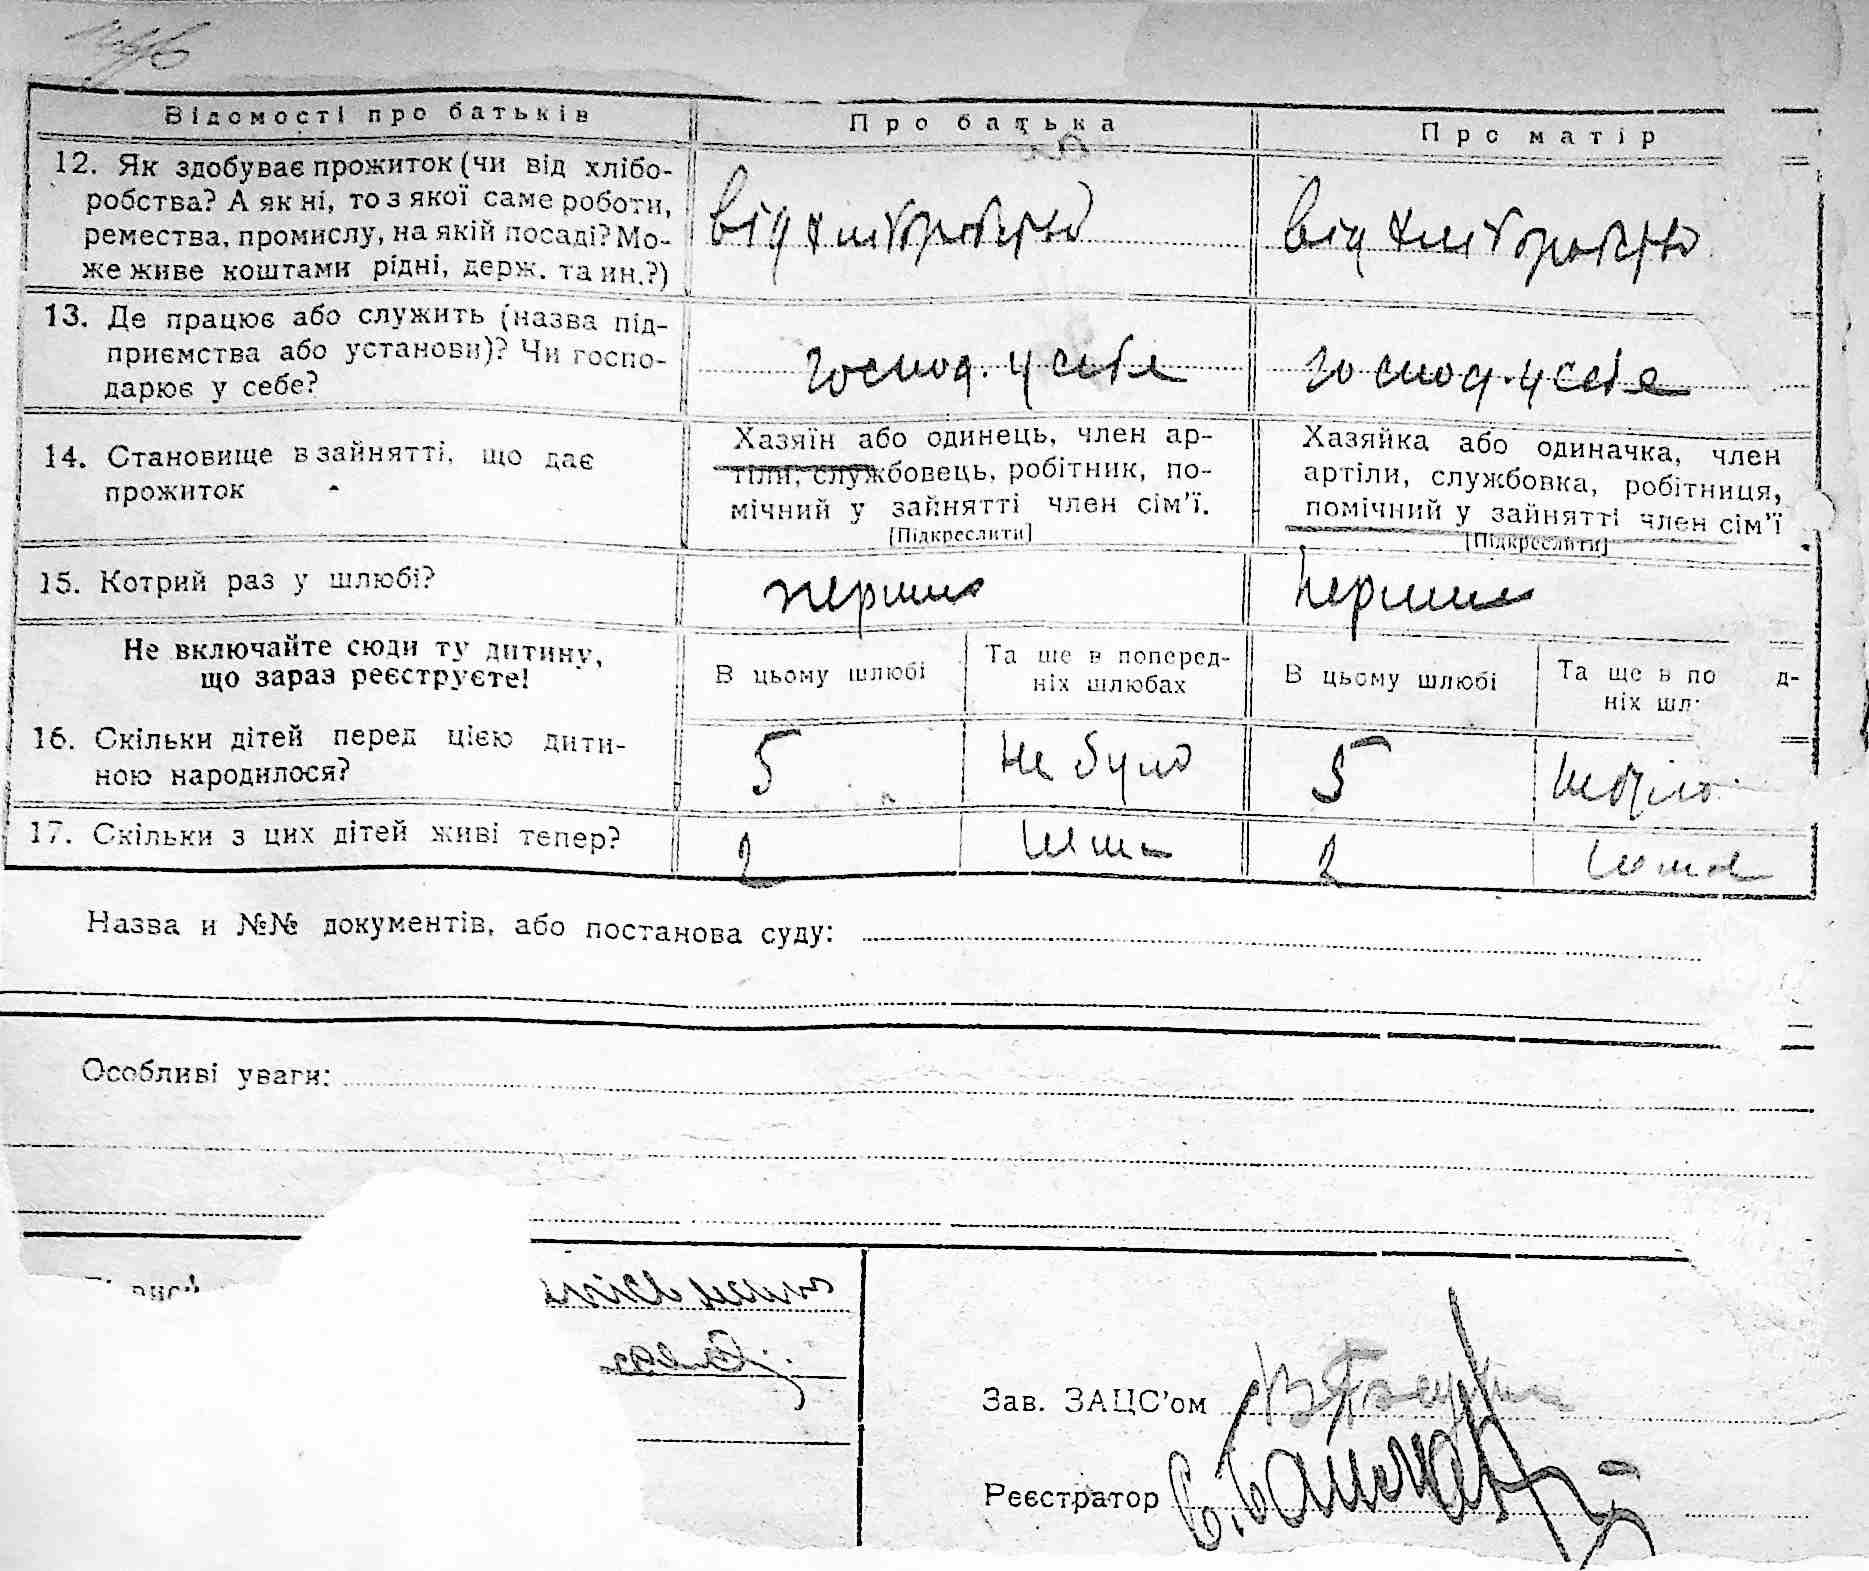 Відомості про батьків Про батька Про матір
12. Як здобуває прожиток (чи від хлібо-
робства? А як ні, то з якої саме роботи,
ремества, промислу, на якій посаді? Мо-
же живе коштами рідні, держ. та ин.?)
від хліборобства від хліборобства
13. Де працює або служить (назва під-
приємства або установи)? Чи госпо-
дарює у себе?
господ. у себе господ. у себе
14. Становище в зайнятті, що дає
прожиток
Хазяїн або одинець, член ар-
тіли, службовець, робітник, по-
мічний у зайнятті член сім'ї.
[Підкреслити]
Хазяйка або одиначка, член
артіли, службовка, робітниця,
помічний у зайнятті член сім'ї
[Підкреслити]
15. Котрий раз у шлюбі? перший перший
Не включайте сюди ту дитину,
що зараз реєструєте!
В цьому шлюбі Та ще в поперед-
ніх шлюбах
В цьому шлюбі Та ще в по д-
ніх шл
16. Скільки дітей перед цією дити-
ною народилося?
5 не було 5 не було
17. Скільки з цих дітей живі тепер? 2 нема 2 нема
Назва и №№ документів, або постанова суду:
Особливі уваги:
Зав. ЗАЦС'ом
Реєстратор